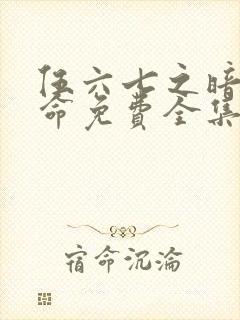 伍六七之暗
命免费全集
宿命沉沦